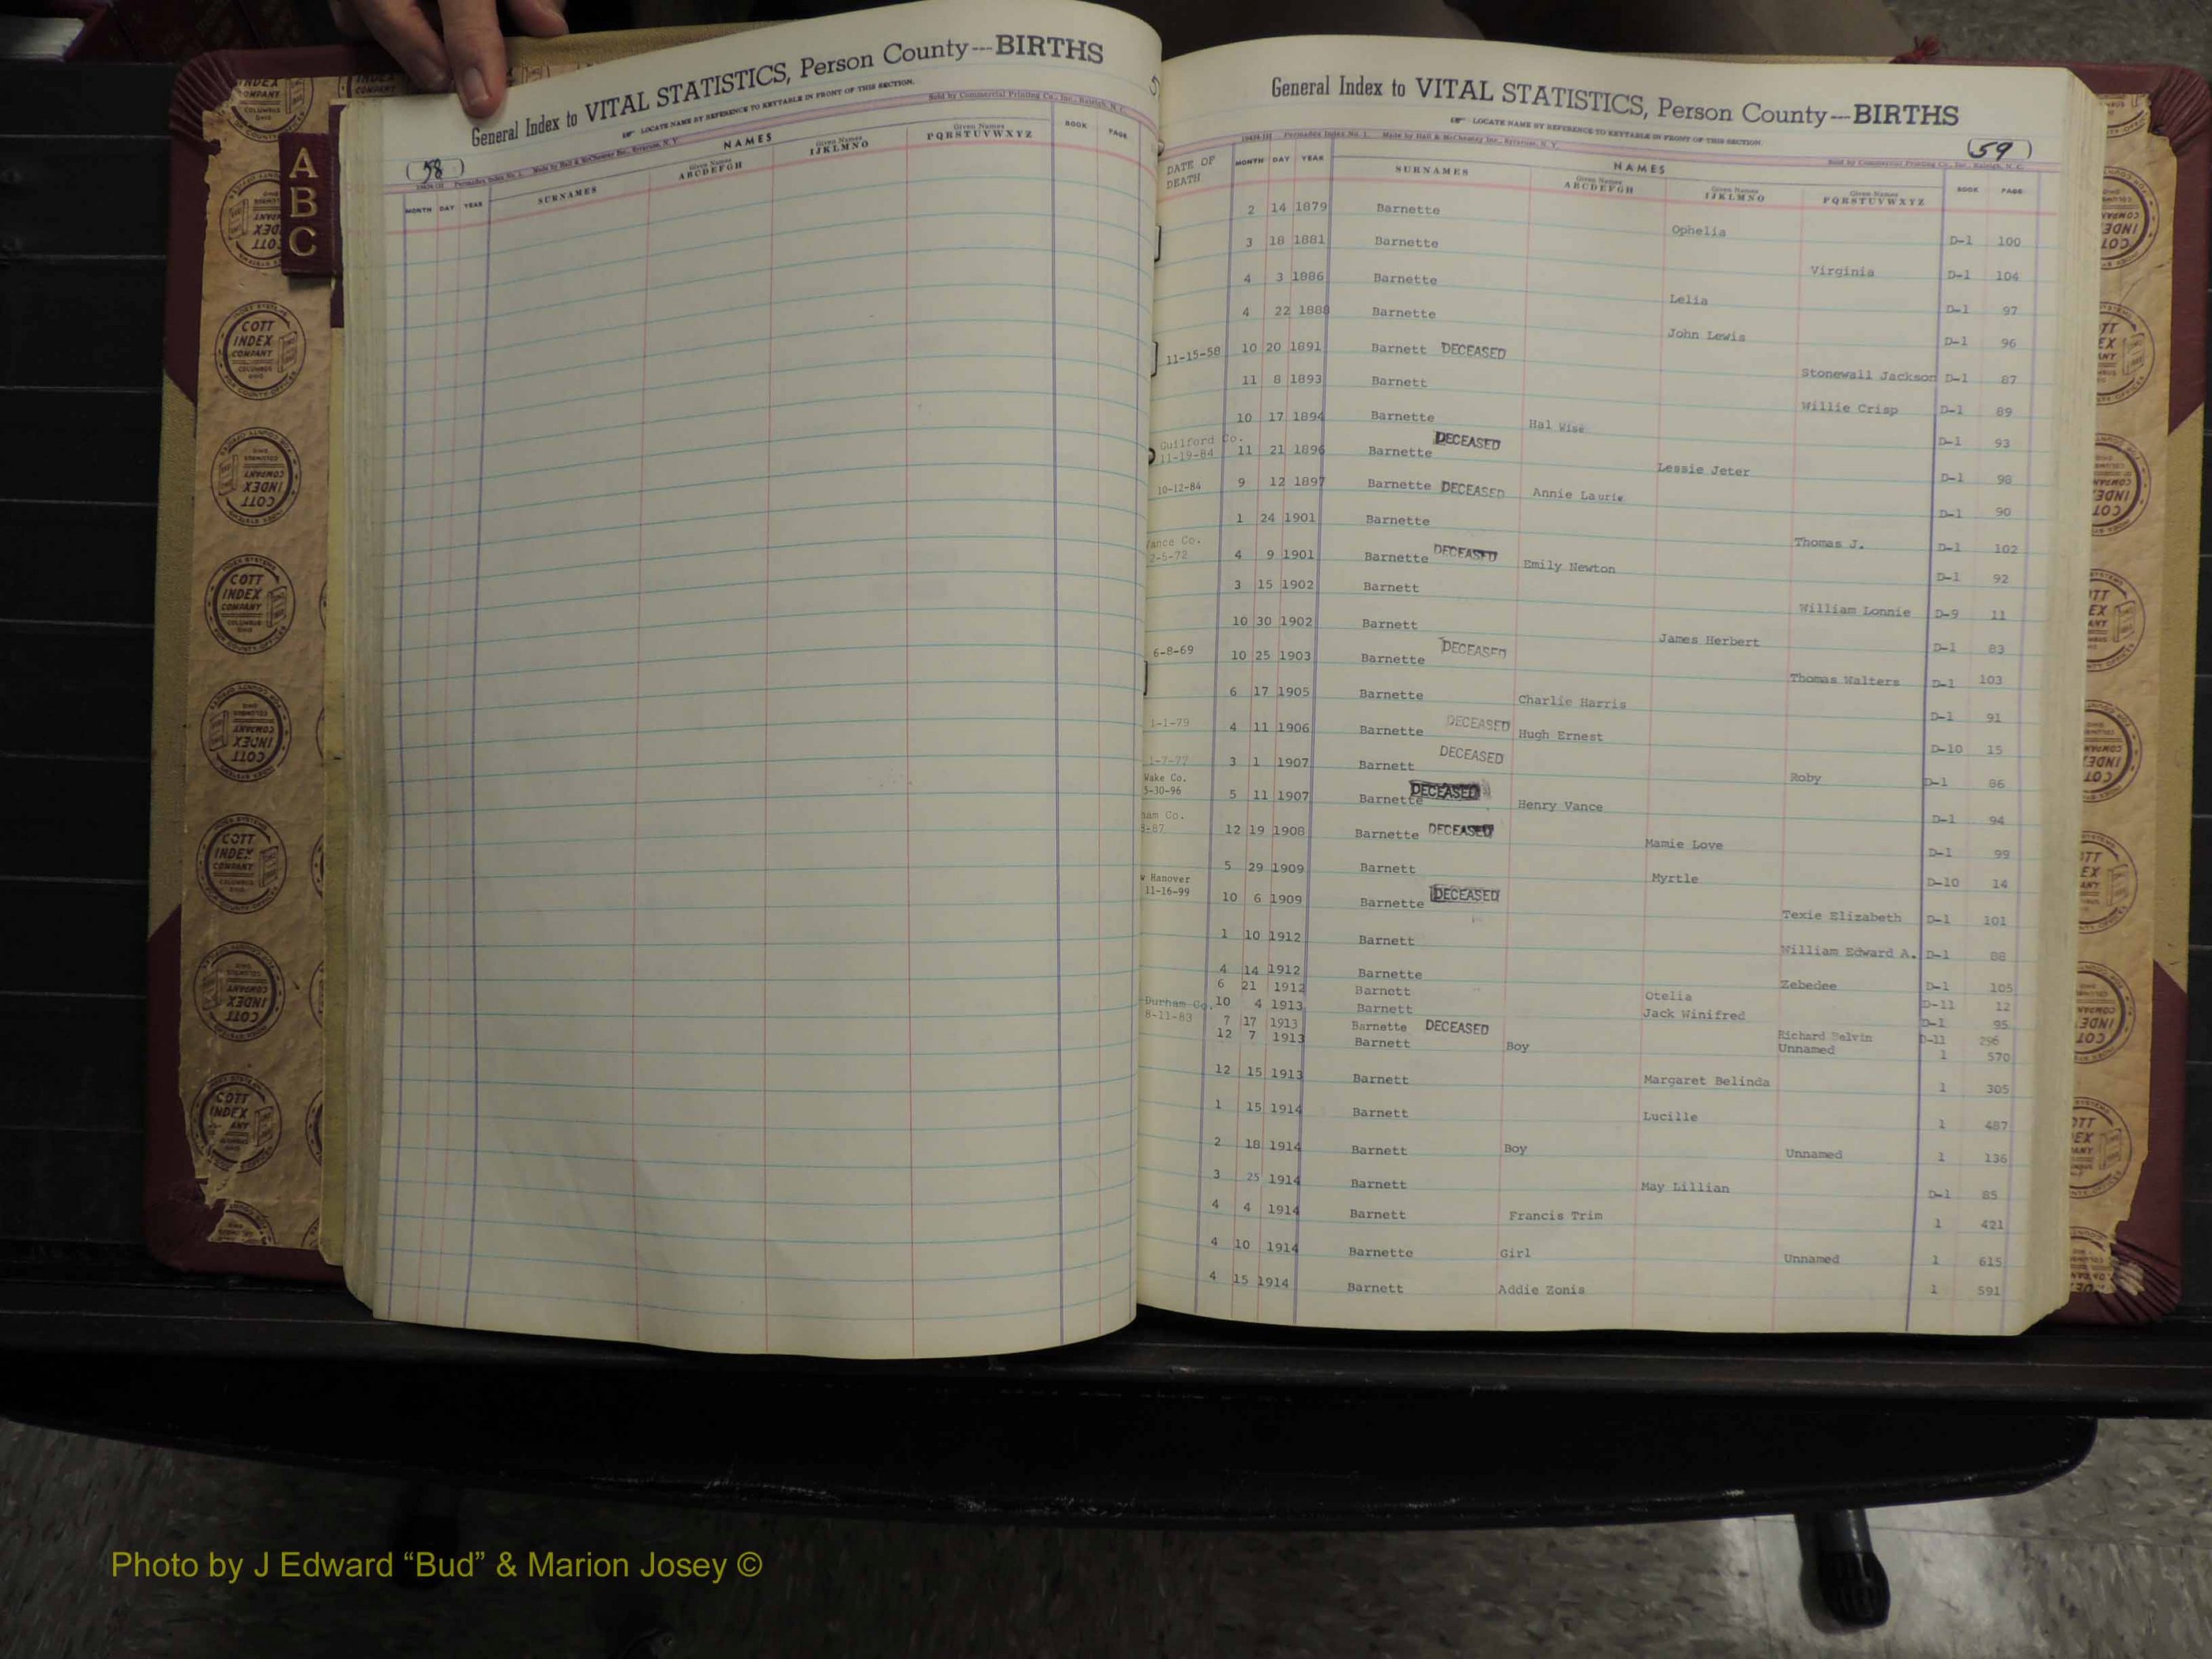 General Index to VITAL STATISTICS, Person County---BIRTHS
LOCATE NAME BY REFERENCE TO KEYTABLE IN FRONT OF THIS SECTION.
Sold by Commercial Printing Co., Inc., Raleigh, N. C.
(58)
NAMES
MONTH DAY YEAR SURNAMES Given Names ABCDEFGH Given Names IJKLMNO Given Names PQRSTUVWXYZ BOOK PAGE
A
B
C
General Index to VITAL STATISTICS, Person County---BIRTHS
LOCATE NAME BY REFERENCE TO KEYTABLE IN FRONT OF THIS SECTION.
(59)
Made by Hall & McChesney Inc., Syracuse, N. Y. Sold by Commercial Printing Co., Inc., Raleigh, N. C.
NAMES
DATE OF DEATH MONTH DAY YEAR SURNAMES Given Names ABCDEFGH Given Names IJKLMNO Given Names PQRSTUVWXYZ BOOK PAGE
2 14 1879 Barnette Ophelia D-1 100
3 18 1881 Barnette Virginia D-1 104
4 3 1886 Barnette Lelia D-1 97
4 22 1888 Barnette John Lewis D-1 96
11-15-58 10 20 1891 Barnett DECEASED Stonewall Jackson D-1 87
11 8 1893 Barnett Willie Crisp D-1 89
10 17 1894 Barnette Hal Wise D-1 93
Guilford Co. 11-19-84 11 21 1896 Barnette DECEASED Lessie Jeter D-1 98
10-12-84 9 12 1897 Barnette DECEASED Annie Laurie D-1 90
1 24 1901 Barnette Thomas J. D-1 102
Vance Co. 2-5-72 4 9 1901 Barnette DECEASED Emily Newton D-1 92
3 15 1902 Barnett William Lonnie D-9 11
10 30 1902 Barnett James Herbert D-1 83
6-8-69 10 25 1903 Barnette DECEASED Thomas Walters D-1 103
6 17 1905 Barnette Charlie Harris D-1 91
1-1-79 4 11 1906 Barnette DECEASED Hugh Ernest D-10 15
1-7-77 3 1 1907 Barnett DECEASED Roby D-1 86
Wake Co. 5-30-96 5 11 1907 Barnette DECEASED Henry Vance D-1 94
ham Co. 8-87 12 19 1908 Barnette DECEASED Mamie Love D-1 99
5 29 1909 Barnett Myrtle D-10 14
w Hanover 11-16-99 10 6 1909 Barnette DECEASED Texie Elizabeth D-1 101
1 10 1912 Barnett William Edward A. D-1 88
4 14 1912 Barnette Zebedee D-1 105
6 21 1912 Barnett Otelia D-11 12
10 4 1913 Barnett Jack Winifred D-1 95
Durham Co. 8-11-83 7 17 1913 Barnette DECEASED Richard Belvin D-11 296
12 7 1913 Barnett Boy Unnamed 1 570
12 15 1913 Barnett Margaret Belinda 1 305
1 15 1914 Barnett Lucille 1 487
2 18 1914 Barnett Boy Unnamed 1 136
3 25 1914 Barnett May Lillian D-1 85
4 4 1914 Barnett Francis Trim 1 421
4 10 1914 Barnette Girl Unnamed 1 615
4 15 1914 Barnett Addie Zonis 1 591
COTT INDEX COMPANY COLUMBUS OHIO
Photo by J Edward “Bud” & Marion Josey ©